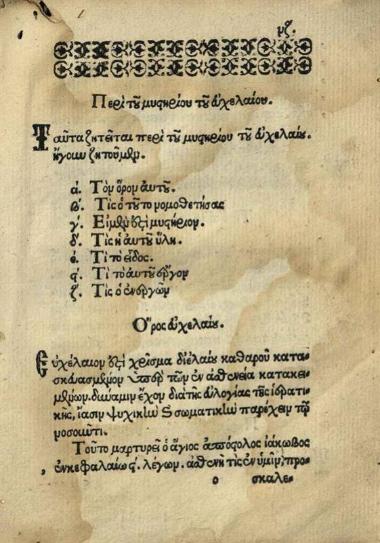 μζ.
Περὶ τοῦ μυστηρίου τοῦ εὐχελαίου.
Ταῦτα ζητεῖται περὶ τοῦ μυστηρίου τοῦ εὐχελαίου.
ἤγουν ζητοῦμεν.
α. Τὸν ὅρον αὐτοῦ.
β. Τίς ὁ τοῦτο νομοθετήσας
γ. Εἰ μὲν ἐστὶ μυστήριον.
δ. Τίς ἡ αὐτοῦ ὕλη.
ε. Τί τὸ εἶδος.
ϛ. Τί τὸ αὐτοῦ ἔργον
ζ. Τίς ὁ ἐνεργῶν
Ὅρος εὐχελαίου.
Εὐχέλαιον ἐστὶ χρίσμα δι' ἐλαίου καθαροῦ κατα-
σκευασμένον ὑπὲρ τῶν ἐν ἀσθενεία κατακει-
μένων. δύναμιν ἔχον διὰ τῆς εὐλογίας τῆς ἱερατι-
κῆς, ἴασιν ψυχικὴν ϗ σωματικὴν παρέχειν τῷ
νοσοῦντι.
Τοῦτο μαρτυρεῖ ὁ ἅγιος ἀπόστολος ἰάκωβος
ἐν κεφαλαίῳ ε. λέγων. ἀσθενῆ τὶς ἐν ὑμῖν; προ-
ο σκαλε-